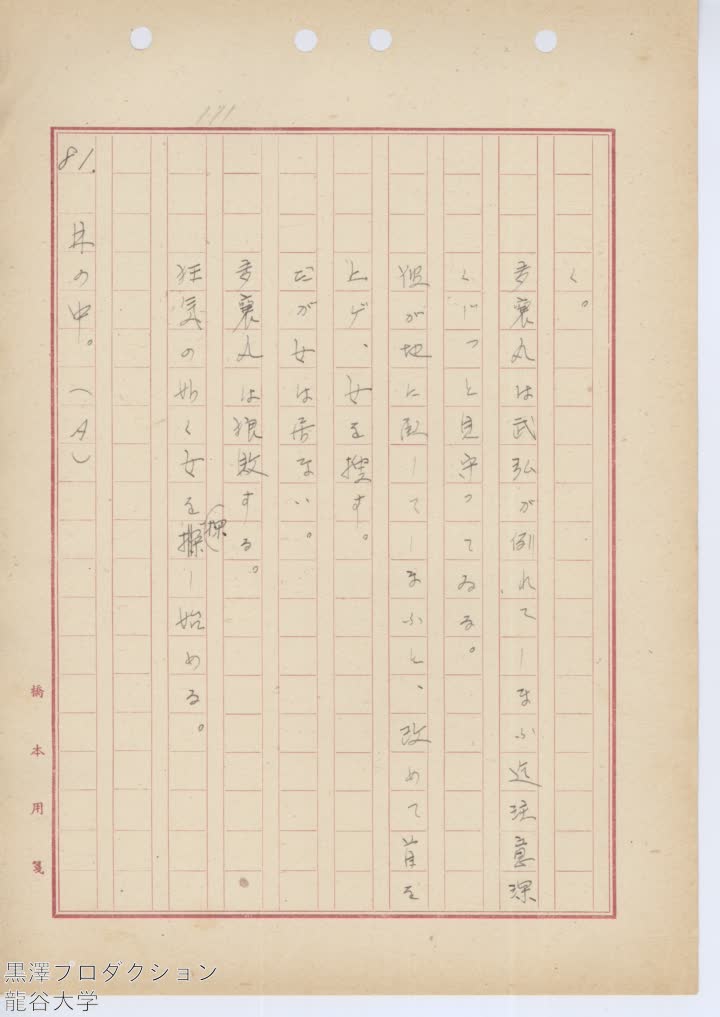 171
く。
多襄丸は武弘が倒れてしまふ迄注意深
くじっと見守ってゐる。
彼が地に臥してしまふと、改めて首を
上げ、女を捜す。
だが女は居ない。
多襄丸は狼狽する。
狂気の如く女を探し始める。
81. 林の中。(A)
橋本用箋
黒澤プロダクション
龍谷大学